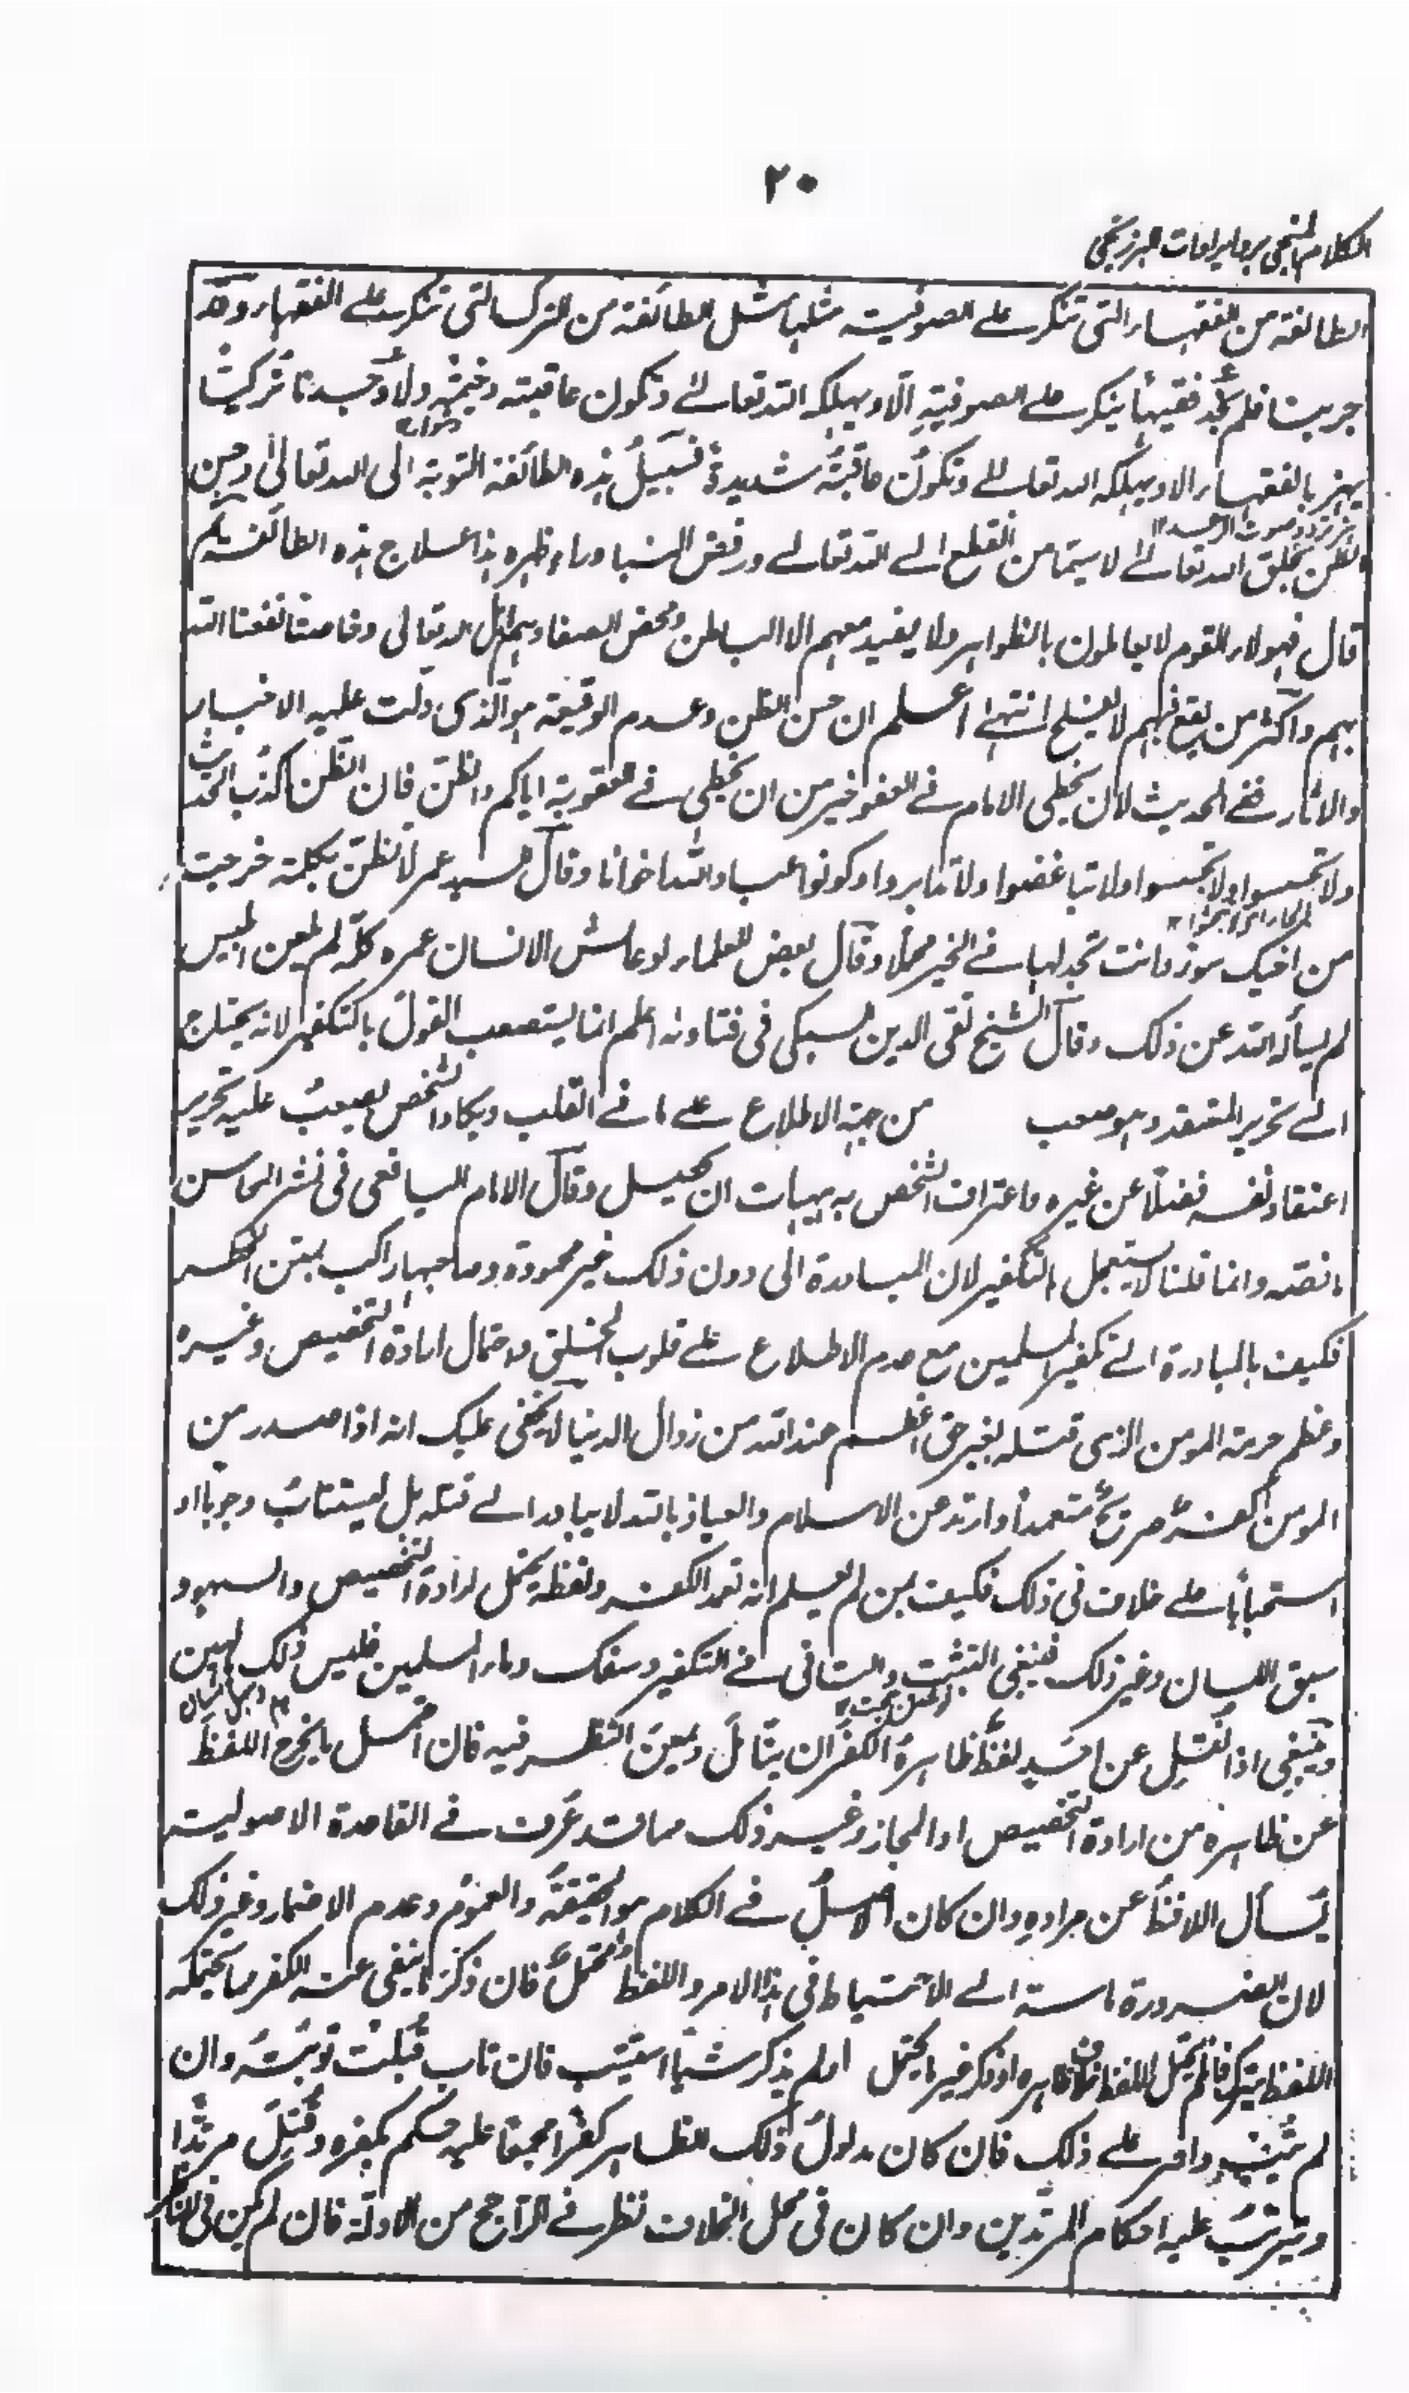 ٢٠
الكلام المنجى برد ايرادات البرزنجى
الطائفة من الفقهاء التى تنكر على الصوفية مثلها مثل الطائفة من الترك التى تنكر على الفقهاء وقد
جربنا فلم نجد فقيها ينكر على الصوفية الا ويهلكه الله تعالى وتكون عاقبته وخيمة ولا وجدنا تركيا
يهزء بالفقهاء الا ويهلكه الله تعالى وتكون عاقبته شديدة فسبيل هذه الطائفة التوبة الى الله تعالى وحسن
الظن بخلق الله تعالى لا سيما من انقطع الى الله تعالى ورفض الدنيا وراء ظهره هذا علاج هذه الطائفة ثم
قال فهؤلاء القوم لا يعاملون بالظواهر ولا يفيد معهم الا الباطن ومحض الصفا وهم اهل الله تعالى وخاصته نفعنا الله
بهم واكثر من يقع فيهم لا يفلح انتهى اعلم ان حسن الظن وعدم الوقيعة هو الذى دلت عليه الاخبار
والاثار ففى الحديث لان يخطى الامام فى العفو خير من ان يخطى فى العقوبة اياكم والظن فان الظن اكذب الحديث
ولا تحسسوا ولا تجسسوا ولا تباغضوا ولا تدابروا وكونوا عباد الله اخوانا وقال السيد عمر لا تظن بكلمة خرجت
من اخيك سوء وانت تجد لها فى الخير محملا وقال بعض العلماء لو عاش الانسان عمره كله لم يلعن ابليس
لم يسأله الله عن ذلك وقال الشيخ تقى الدين السبكى فى فتاونه اعلم انما يستصعب القول بالتكفير لانه يحتاج
الى تحرير المعتقد وهو صعب من جهة الاطلاع على ما فى القلب ويكاد الشخص يصعب عليه تحرير
اعتقاد نفسه فضلا عن غيره واعتراف الشخص به هيهات ان يحصل وقال الامام اليافعى فى نشر المحاسن
ما نصه وانما قلنا لا يستعجل بالتكفير لان المبادرة الى دون ذلك غير محمودة وصاحبها راكب متن الخطر
فكيف بالمبادرة الى تكفير المسلمين مع عدم الاطلاع على قلوب الخلق واحتمال ارادة التخصيص وغيره
وعظم حرمة المومن الذى قتله بغير حق اعظم عند الله من زوال الدنيا لا يخفى عليك انه اذا صدر من
المومن كفر صريح متعمدا وارتد عن الاسلام والعياذ بالله لا يبادر الى قتله بل يستتاب وجوبا او
استحبابا على خلاف فى ذلك فكيف بمن لم يعلم انه تعمد الكفر ولفظه يحتمل ارادة التخصيص والسهو و
سبق اللسان وغير ذلك فينبغى التثبت والتانى فى التكفير وسفك دماء المسلمين فليس ذلك بهين
وينبغى اذا نقل عن احد لفظ ظاهره الكفر ان يتامل ويمعن النظر فيه فان احتمل ما يخرج اللفظ
عن ظاهره من ارادة التخصيص او المجاز وغير ذلك مما قد عرف فى القاعدة الاصولية
يسأل اللافظ عن مراده وان كان الاصل فى الكلام هو الحقيقة والعموم وعدم الاضمار وغير ذلك
لان الضرورة ماسة الى الاحتياط فى هذا الامر واللفظ محتمل فان ذكر ما ينفى عنه الكفر مما يحتمله
اللفظ يترك فان لم يحتمل اللفظ خلاف ظاهره او ذكر غير ما يحتمل اولم يذكر شيئا استتيب فان تاب قبلت توبته وان
لم يتب واصر على ذلك فان كان مدلول ذلك الظاهر كفرا مجمعا عليه حكم بكفره وقتل مرتدا
ويترتب عليه احكام المرتدين وان كان فى محل الخلاف نظر فى الراجح من الادلة فان لم يكن فى